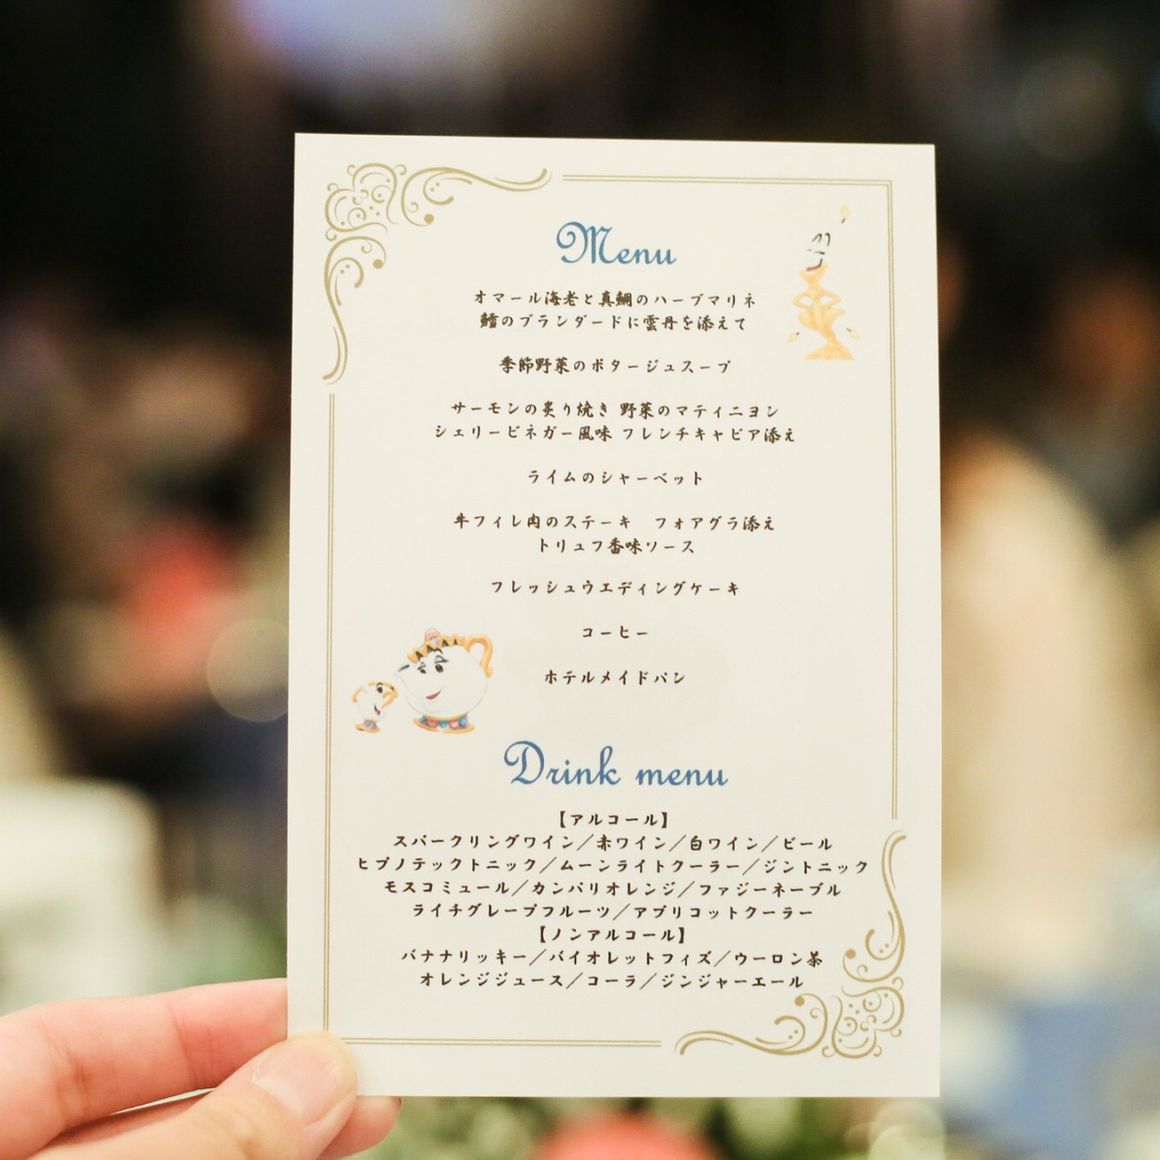 Menu
オマール海老と真鯛のハーブマリネ
鱈のブランダードに雲丹を添えて
季節野菜のポタージュスープ
サーモンの炙り焼き 野菜のマティニヨン
シェリービネガー風味 フレンチキャビア添え
ライムのシャーベット
牛フィレ肉のステーキ　フォアグラ添え
トリュフ香味ソース
フレッシュウエディングケーキ
コーヒー
ホテルメイドパン
Drink menu
【アルコール】
スパークリングワイン／赤ワイン／白ワイン／ビール
ヒプノテックトニック／ムーンライトクーラー／ジントニック
モスコミュール／カンパリオレンジ／ファジーネーブル
ライチグレープフルーツ／アプリコットクーラー
【ノンアルコール】
バナナリッキー／バイオレットフィズ／ウーロン茶
オレンジジュース／コーラ／ジンジャーエール